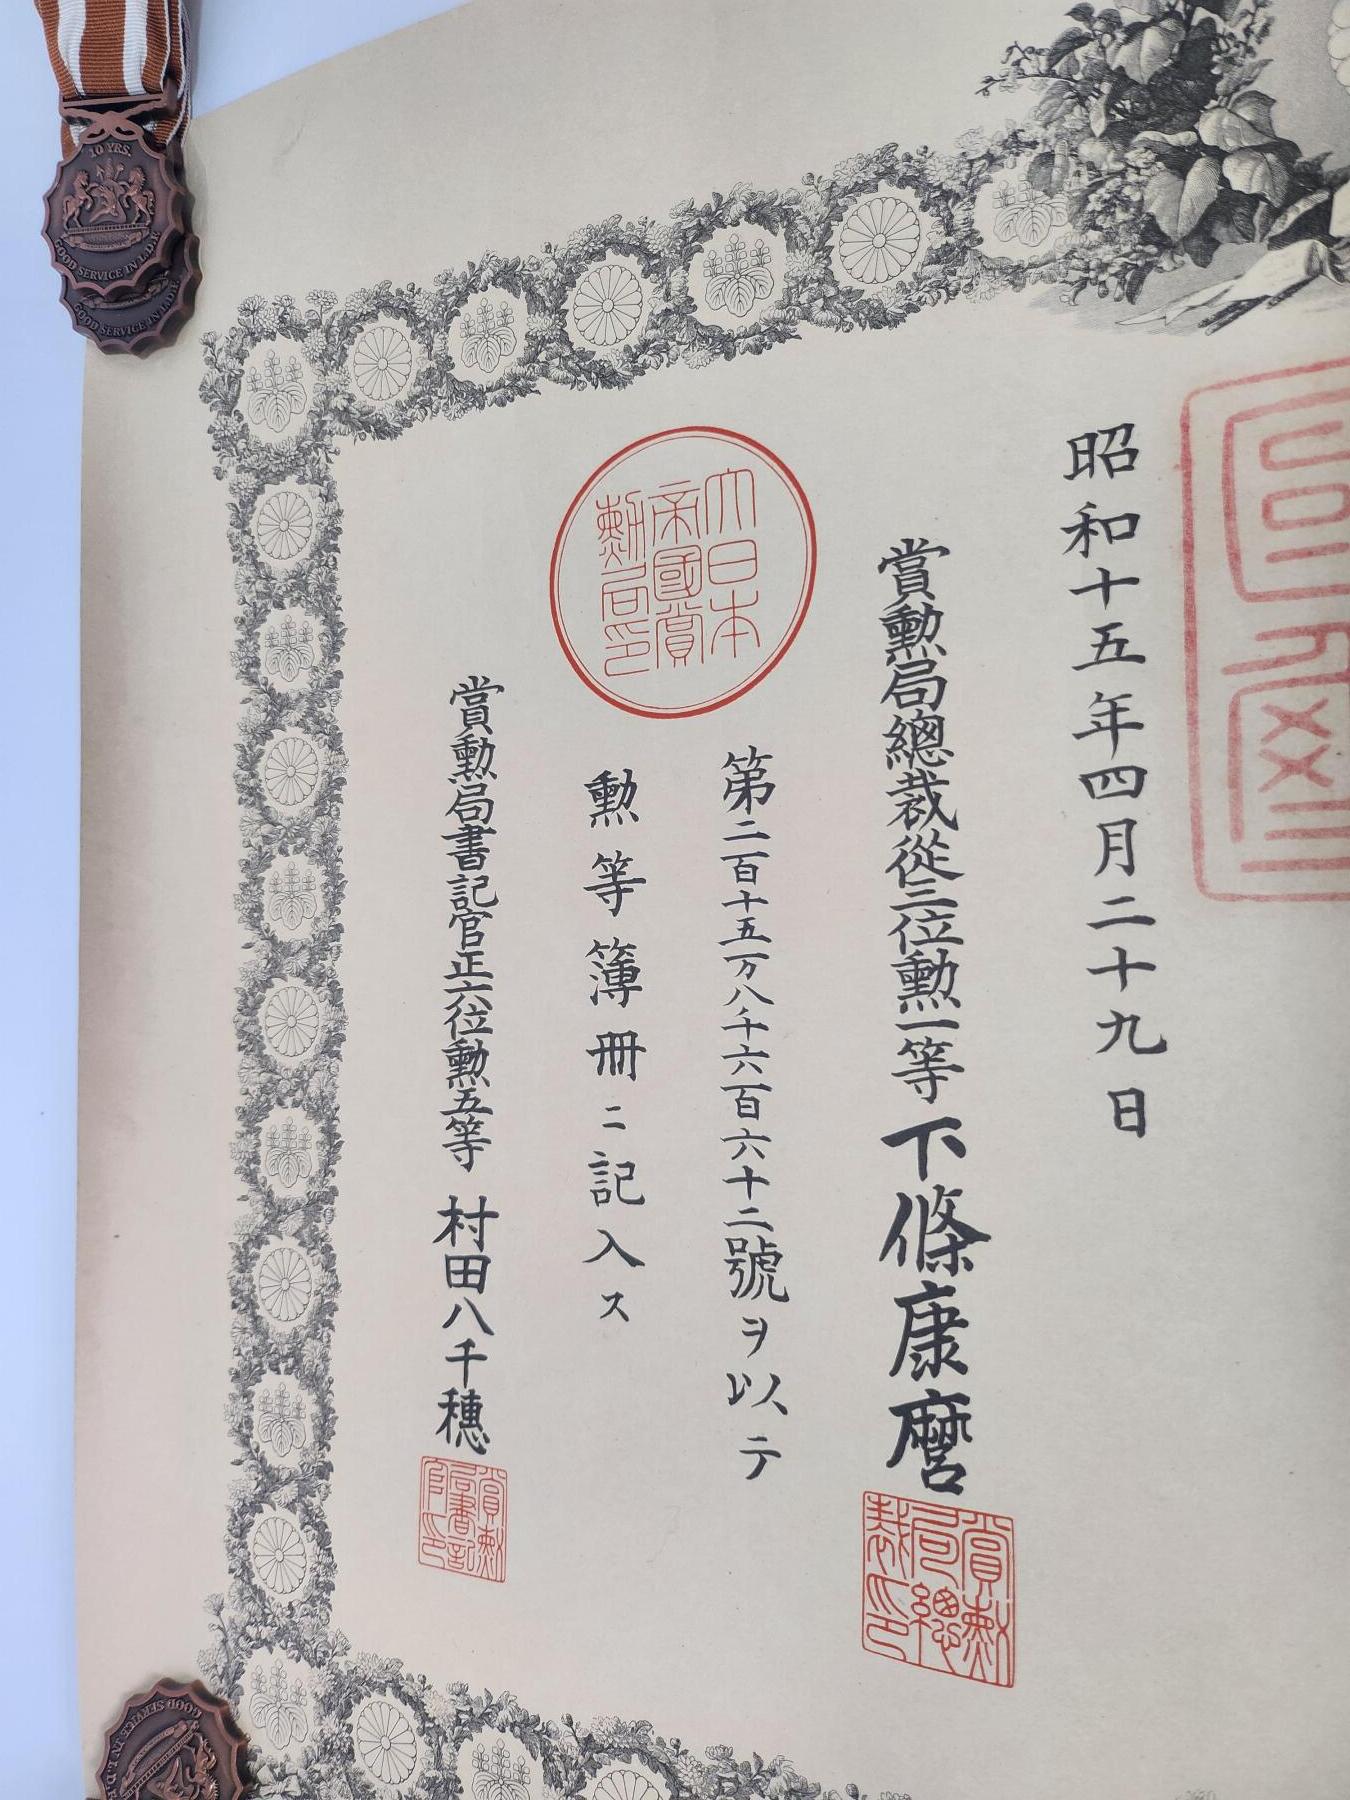 昭和十五年四月二十九日
賞勲局總裁從三位勲一等 下條康麿
賞勲局總裁印
大日本帝國賞勲局印
第二百十五万八千六百六十二號ヲ以テ
勲等簿冊ニ記入ス
賞勲局書記官正六位勲五等 村田八千穗
賞勲局書記官印
10 YRS.
GOOD SERVICE IN
GOOD SERVICE IN
GOOD SERVICE IN